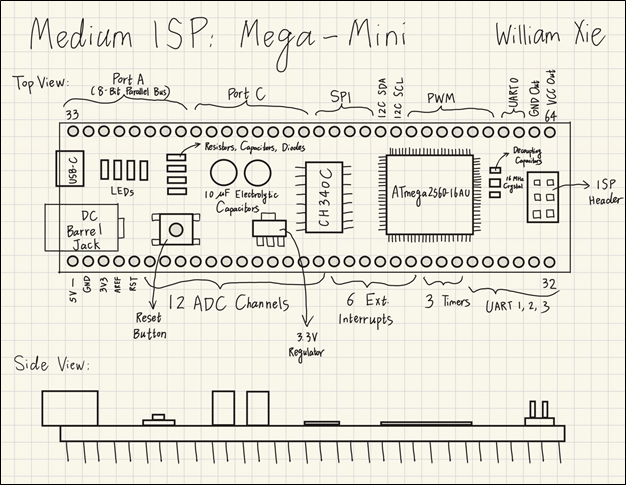 Medium ISP: Mega-Mini
William Xie
Top View:
Port A
(8-Bit Parallel Bus)
Port C
SPI
I2C SDA
I2C SCL
PWM
UART0
GND Out
VCC Out
33
64
USB-C
LEDs
Resistors, Capacitors, Diodes
10 µF Electrolytic
Capacitors
CH340C
ATmega2560-16AU
Decoupling
Capacitors
16 MHz
Crystal
ISP
Header
DC
Barrel
Jack
5V
GND
3V3
AREF
RST
12 ADC Channels
6 Ext.
Interrupts
3 Timers
UART 1, 2, 3
32
Reset
Button
3.3V
Regulator
Side View: